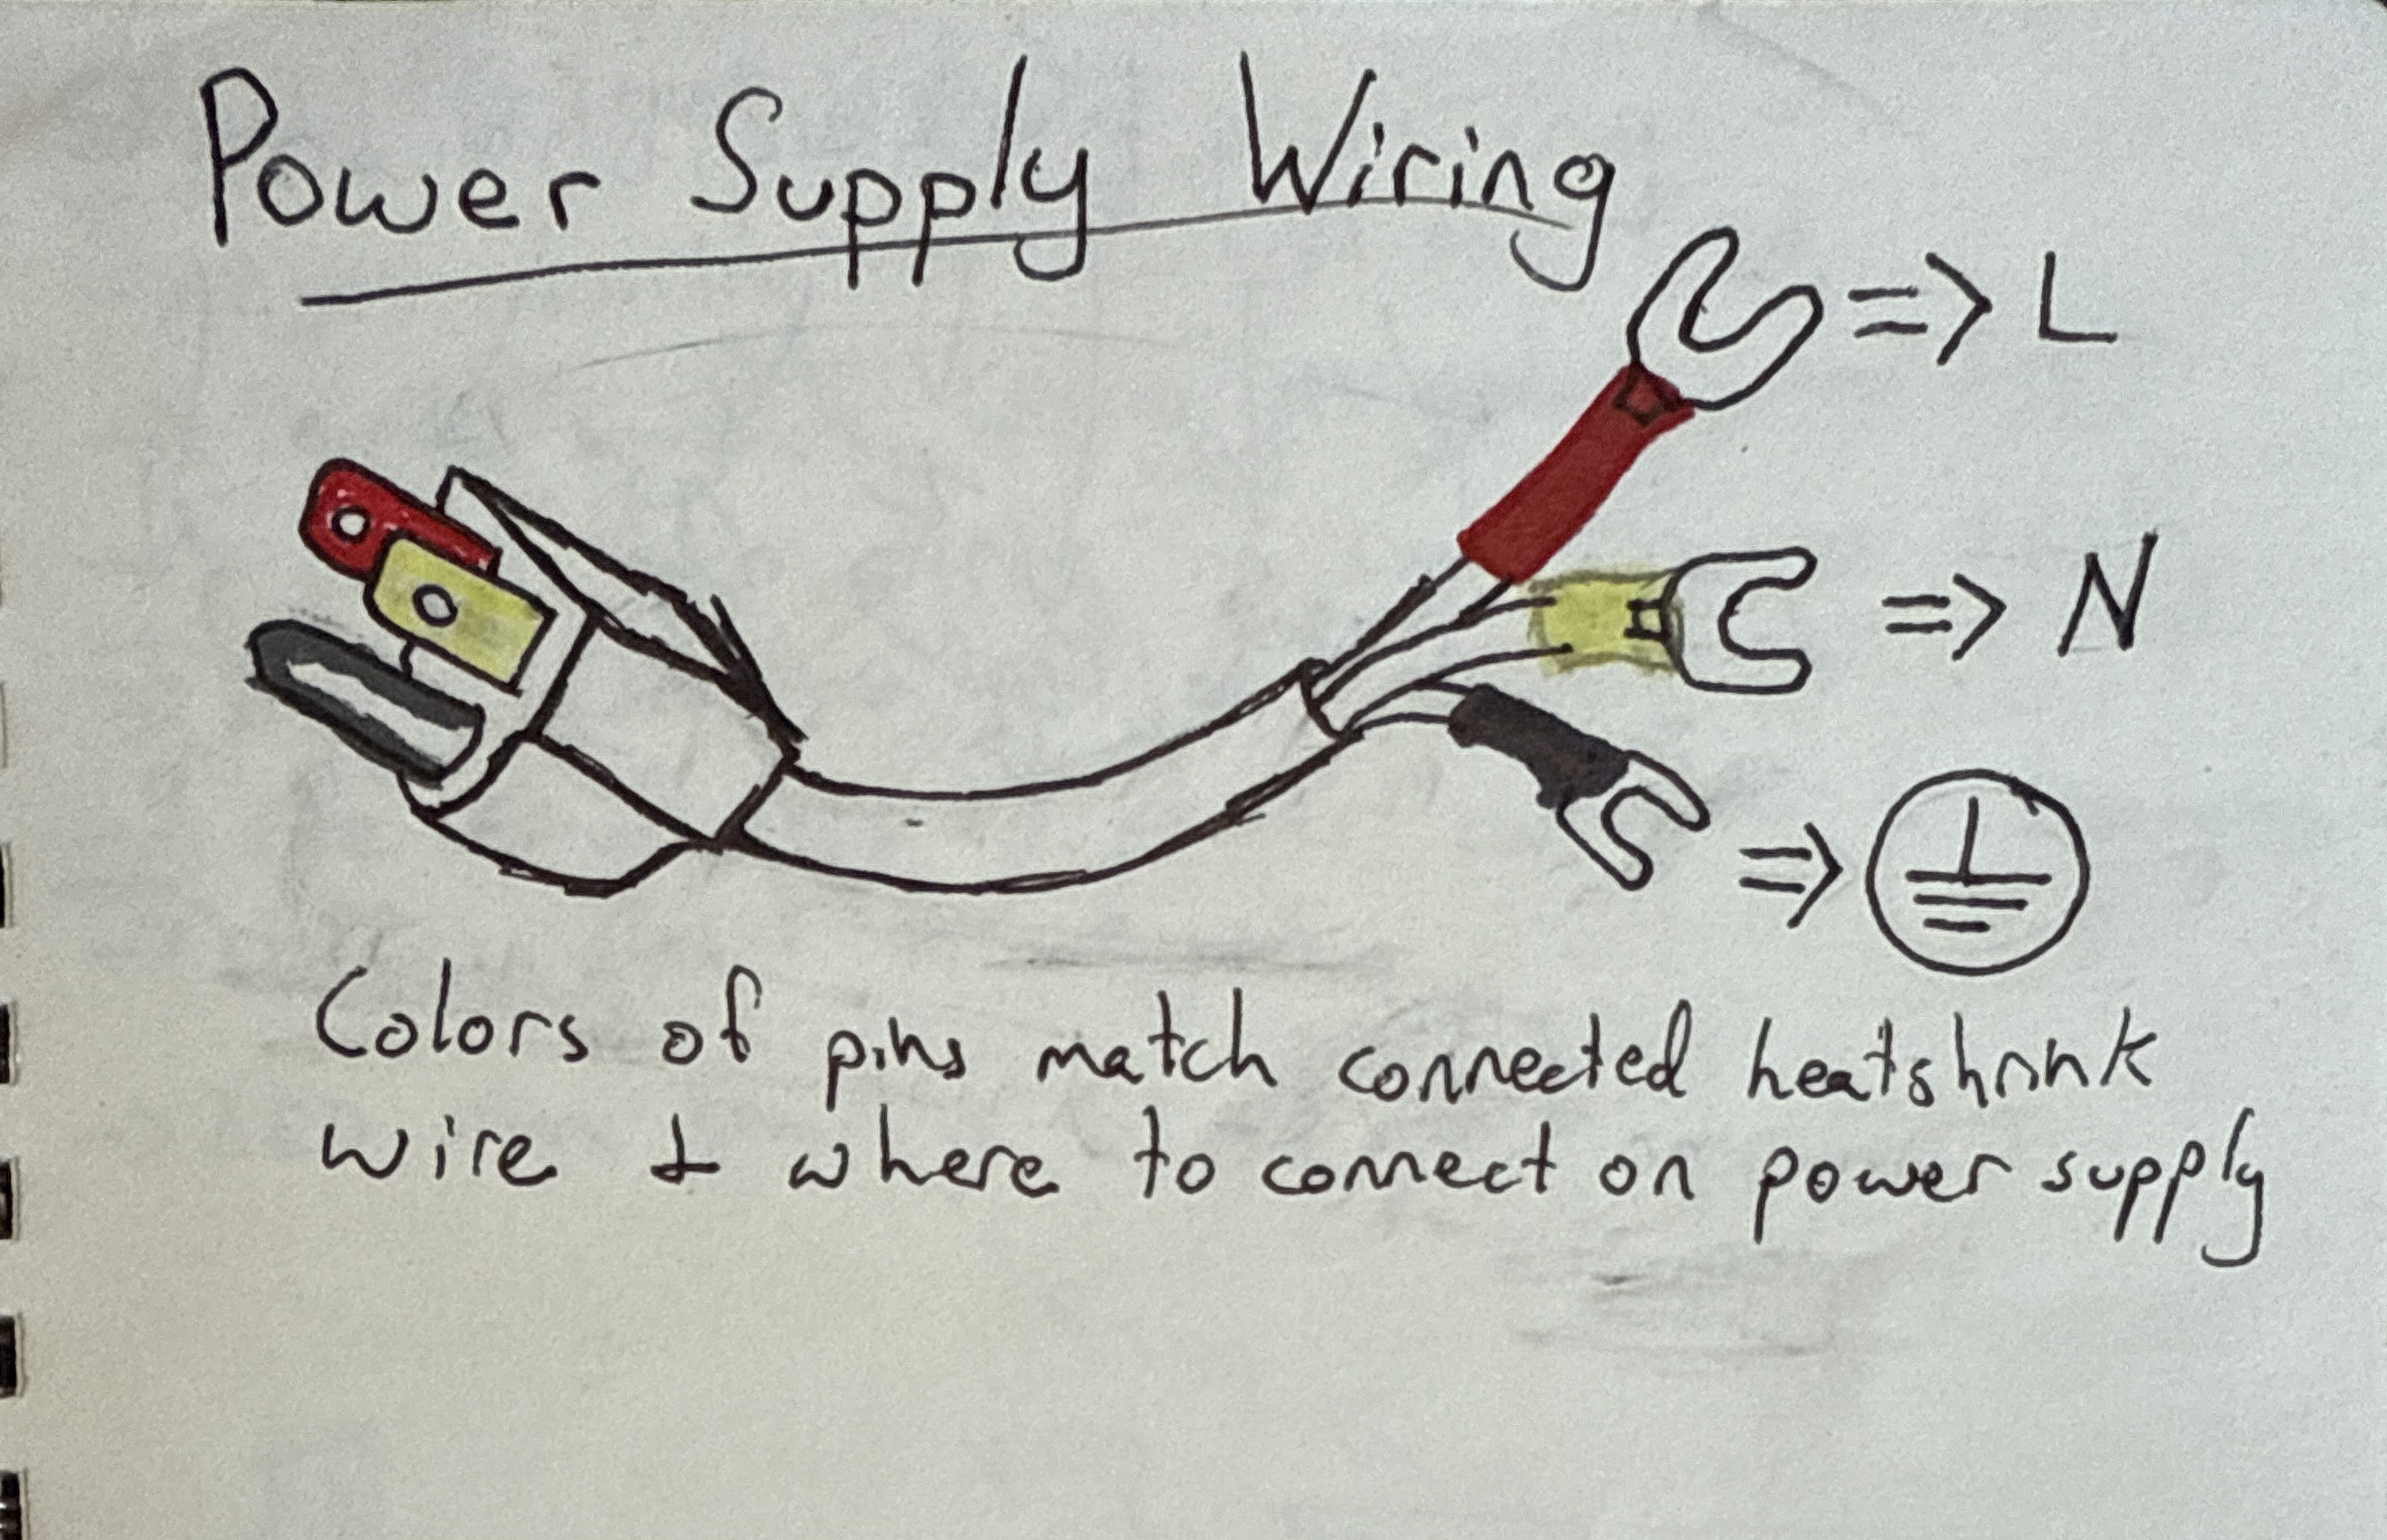 Power Supply Wiring
=> L
=> N
=>
Colors of pins match connected heatshrink
wire & where to connect on power supply